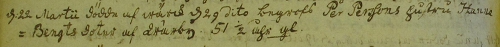 d 22 Martii dödde af wärk d 29 dito begrofs Per Perssons hustru Hanna
= Bengts doter af Qwarby. 51 ½ åhr gl